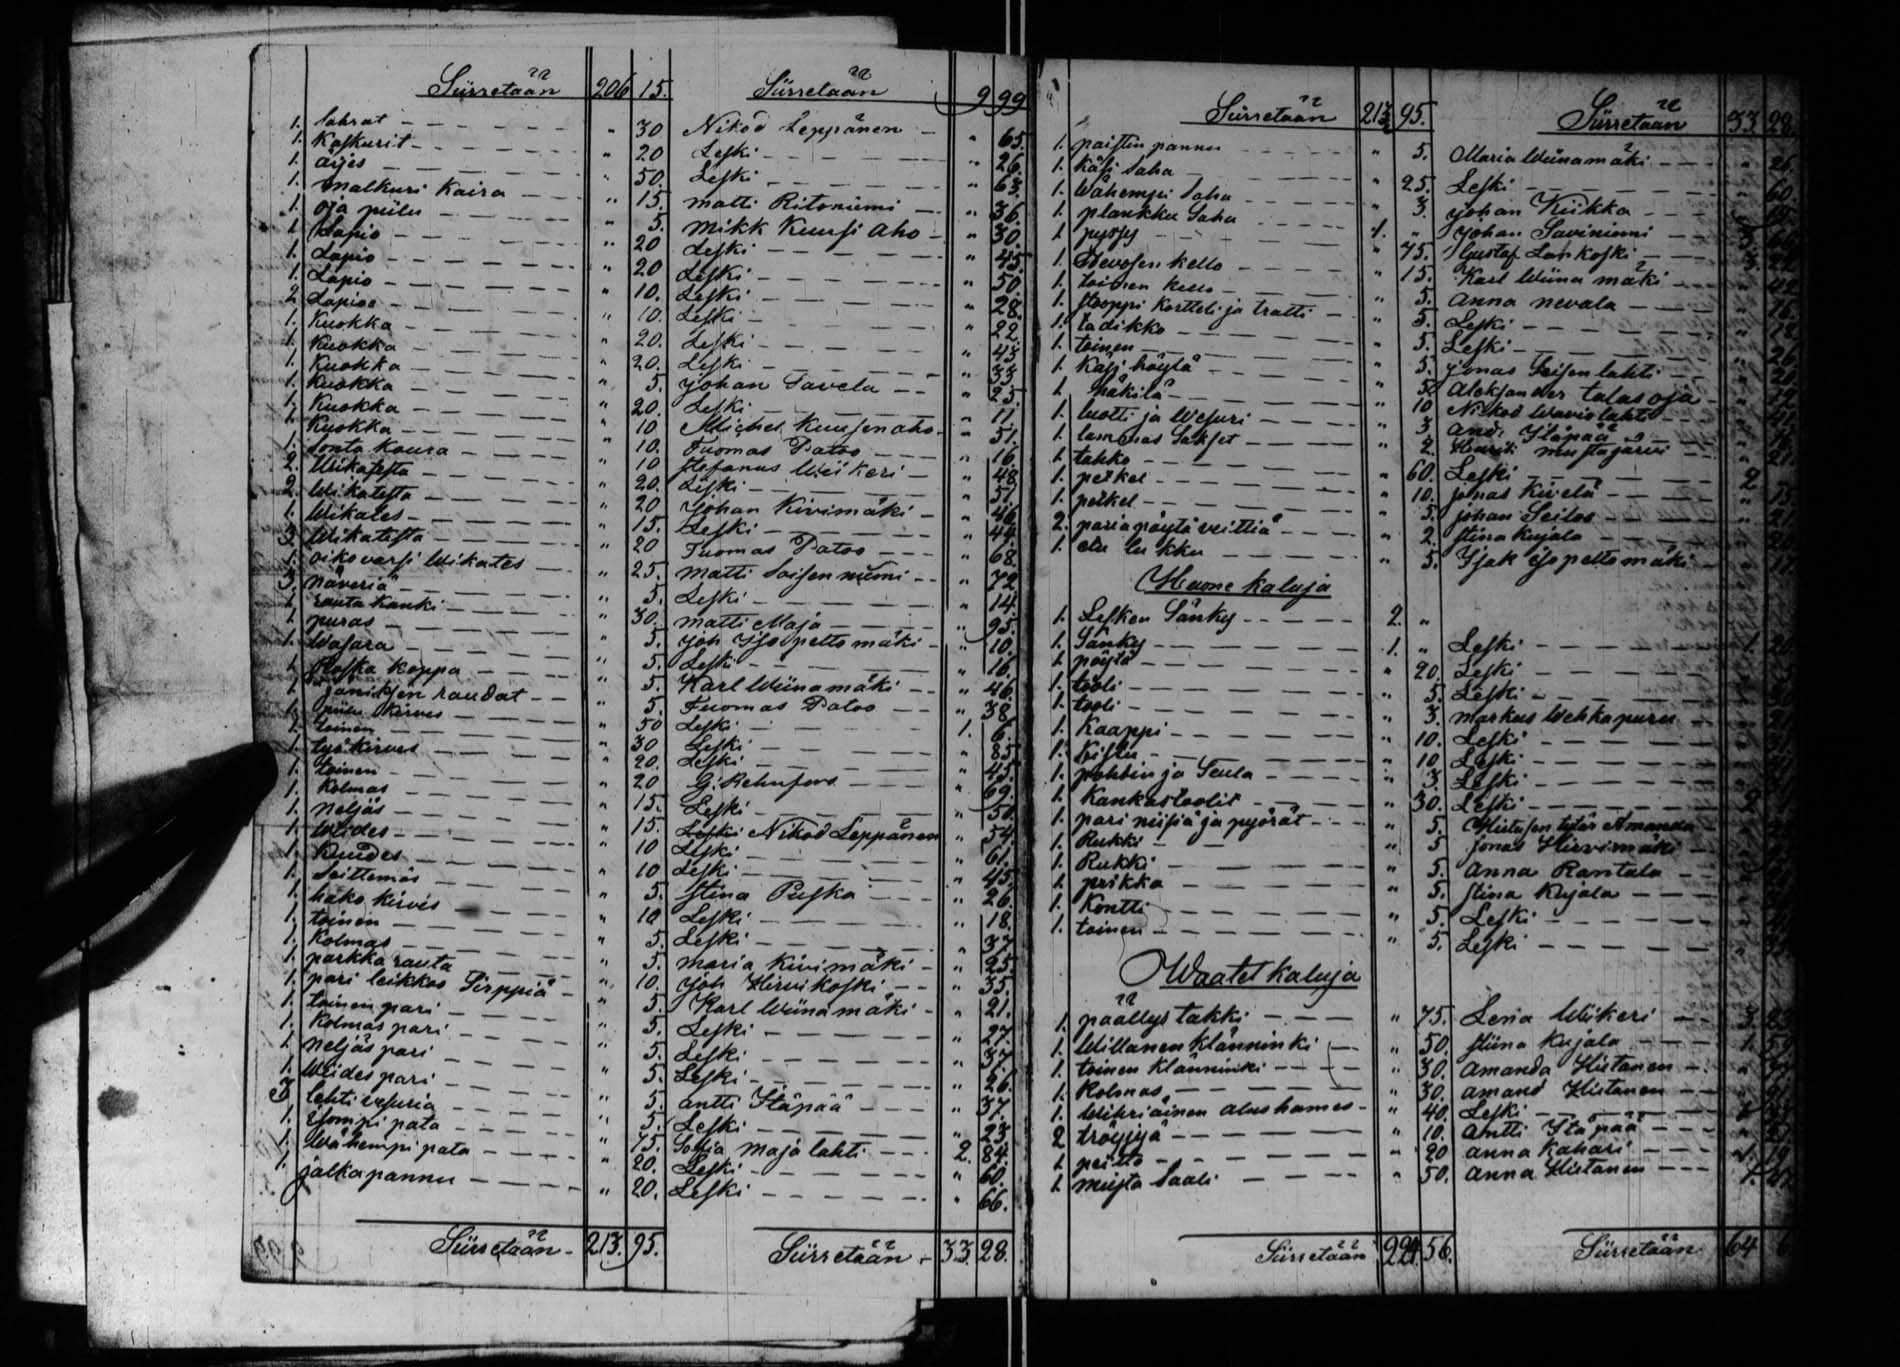 Siirretään 206 15. Siirretään 9 99
1. sahrat " 30 Nikod Leppänen " 65.
1. Koskurit " 20 Leski " 26.
1. äijes " 50. Leski " 63.
1. malkuri Kaira " 15. matti Ritoniemi " 36.
1. oja piilu " 5. mikk Kuusi aho " 30.
1. Lapio " 20 Leski " 45.
1. Lapio " 20 Leski " 50.
1. Lapio " 10. Leski " 28.
2 Lapioa " 10. Leski " 22.
1. Kuokka " 20. Leski " 43
1. Kuokka " 20. Leski " 33
1. Kuokka " 5. Johan Savela " 25
1. Kuokka " 20. Leski " 11.
1. Kuokka " 10 Michel Kuusenaho " 51.
1. Kuokka " 10. Tuomas Patoo " 16
1. Sonta Koura " 10 Stefanus Wiikeri " 48.
2. Wikatesta " 20. Leski " 51.
2. Wikatesta " 20 Johan Kivimäki " 46
1. Wikates " 15. Leski " 44.
3. Wikatesta " 20 Tuomas Patoo " 68.
1. oikovarsi Wikates " 25. matti Soisen niemi " 72.
3. naveria " 5. Leski " 14.
1. rauta Kanki " 30. matti Maja " 95.
1. puras " 5. Joh Isopelto mäki " 10.
1. Wasara " 5. Leski " 16.
1. Koppa " 5. Karl Wiinamäki " 46.
1. raudat " 5. Tuomas Patoo " 38.
1. piilu Kirves " 50 Leski 1. 6.
1. toinen " 30 Leski " 85.
1. työkirves " 20. Leski " 45.
1. toinen " 20 G. Rehnfors " 69.
1. Kolmas " 15. Leski " 50.
1. neljäs " 15. Nikod Leppänen " 54.
1. Wiides " 10 Leski " 61.
1. Kuudes " 10 Leski " 45.
1. Seittemäs " 5. Stina Puska " 26.
1. hako kirves " 10 Leski " 18.
1. toinen " 5. Leski " 37.
1. Kolmas " 5. maria Kivimäki " 25.
1. parkka rauta " 10. Joh Hirvikoski " 35.
1. pari leikkoo Sirppiä " 5. Karl Wiinamäki " 21.
1. toinen pari " 5. Leski " 27.
1. Kolmas pari " 5. Leski " 37.
1. neljäs pari " 5. Leski " 26.
1. Wiides pari " 5. antti Yläpää " 37.
3 lehti vesuria " 5. Leski " 23.
1. isompi pata " 75. Sohia Majalahti 2. 84.
1. Wähempi pata " 20. Leski " 60.
1. jalkapannu " 20. Leski " 66.
Siirretään 213. 95. Siirretään 33. 28.
Siirretään 213 95. Siirretään 33 28.
1. paistin pannu " 5. Maria Wiinamäki " 26.
1. Käsi Saha " 25. Leski " 60.
1. Wähempi Saha " 3. Johan Kiikka
1. plankku Saha 1. " Johan Saviniemi
1. pyssy " 75. Gustaf Lankoski
1. Hevosen kello " 15. Karl Wiina mäki
1. toinen kello " 5. Anna nevala
1. stooppi Kortteli ja tratti " 5. Leski
1. tadikko " 5. Leski
1. toinen " 5. Jonas Soisen lahti
1. Käsi höylä " 5. Aleksander talasoja
1. häkilä " 10 Nikod
1. luotti ja Wesuri " 3 And. Yläpää
1. Lammas Sakset " 2. Henrik mustajärvi
1. tahko " 60. Leski 2
1. petkel " 10. Jonas Kivelä
1. petkel " 5. Johan Seilos
2. paria pöytä veittiä " 2. Stina Kujala
1. " 5. Isak isopeltomäki
Huone kaluja
1. Lesken Sänky 2. "
1. Sänky 1. " Leski 1.
1. pöytä " 20. Leski
1. tooli " 5. Leski
1. tooli " 3. markus Wehkapuru
1. Kaappi " 10. Leski
1. Kistu " 10 Leski
1. pohtin ja Seula " 3. Leski
1. Kankastoolit " 30. Leski 2
1. pari niisiä ja pyörät " 5. Hietasen tytär Amanda
1. Rukki " 5 Jonas Hirvimäki
1. Rukki " 5. Anna Rantala
1. prikka " 5. Stina Kujala
1. Kontti " 5. Leski
1. toinen " 5. Leski
Waatet kaluja
1. päällys takki " 75. Lena Wiikeri
1. Willanen Klänninki " 50. Stiina Kujala 1.
1. toinen Klänninki " 30. Amanda Hietanen
1. Kolmas " 30. amand Hietanen
1. Wihriäinen alushames " 40. Leski
2 tröyjyä " 10. Antti Yläpää
1. peitto " 20 anna Kahari 1. 19.
1. musta Saali " 50. Anna Hietanen 1.
Siirretään 224. 56. Siirretään 64 6